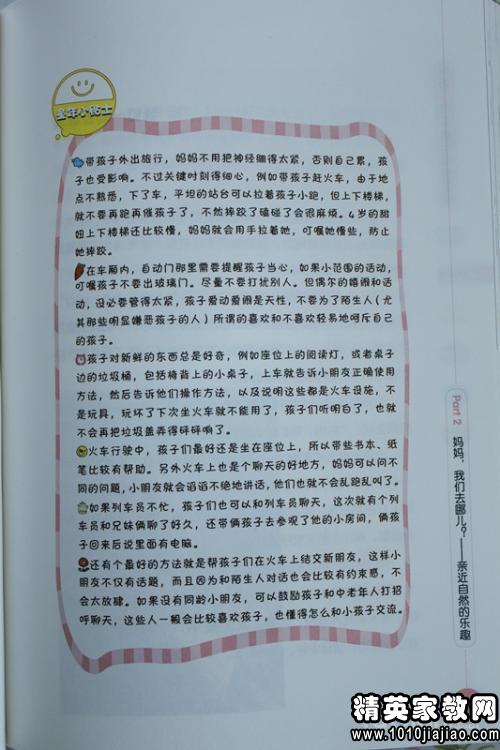 童年小贴士
带孩子外出旅行，妈妈不用把神经绷得太紧，否则自己累，孩
子也受影响。不过关键时刻得细心，例如带孩子赶火车，由于地
点不熟悉，下了车，平坦的站台可以拉着孩子小跑，但上下楼梯，
就不要再跑再催孩子了，不然摔跤了磕碰了会很麻烦。4岁的甜
妞上下楼梯还比较慢，妈妈就会用手拉着她，叮嘱她慢些，防止
她摔跤。
在车厢内，自动门那里需要提醒孩子当心，如果小范围的活动，
叮嘱孩子不要出玻璃门。尽量不要打扰别人。但偶尔的嬉闹和活
动，没必要管得太紧，孩子爱动爱闹是天性，不要为了陌生人（尤
其那些明显嫌恶孩子的人）所谓的喜欢和不喜欢轻易地呵斥自己
的孩子。
孩子对新鲜的东西总是好奇，例如座位上的阅读灯，或老桌子
边的垃圾桶，包括椅背上的小桌子，上车就告诉小朋友正确使用
方法，然后告诉他们操作方法，以及说明这些都是火车设施，不
是玩具，玩坏了下次坐火车就不能用了，孩子们听明白了，也就
不会再把垃圾盖弄得砰砰响了。
火车行驶中，孩子们最好还是坐在座位上，所以带些书本、纸
笔比较有帮助。另外火车上也是个聊天的好地方，妈妈可以问不
同的问题，小朋友就会滔滔不绝地讲话，他们也就不会乱跑乱叫了。
如果列车员不忙，孩子们也可以和列车员聊天，这次就有个列
车员和兄妹俩聊了好久，还带俩孩子去参观了他的小房间，俩孩
子回来后说里面有电脑。
还有个最好的方法就是帮孩子们在火车上结交新朋友，这样小
朋友不仅有话题，而且因为和陌生人对话也会比较有约束感，不
会太放肆。如果没有同龄小朋友，可以鼓励孩子和中老年人打招
呼聊天，这些人一般会比较喜欢孩子，也懂得怎么和小孩子交流。
Part 2 妈妈，我们去哪儿？——亲近自然的乐趣
精英家教网
www.1010jiajiao.com